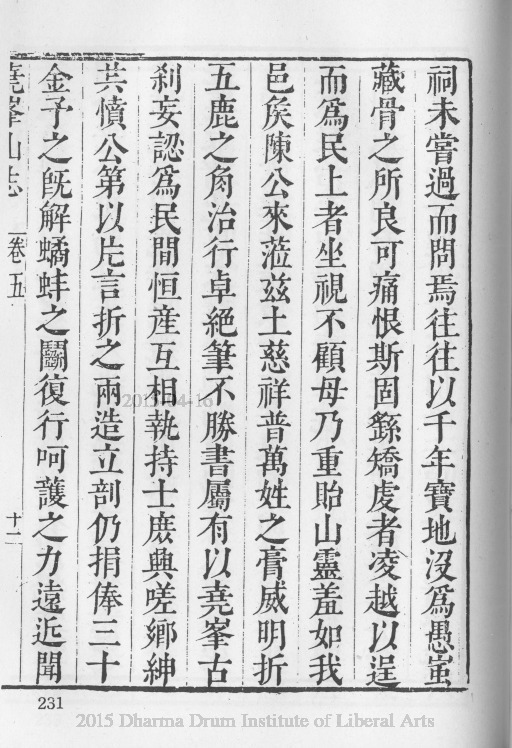 祠未嘗過而問焉往往以千年寶地沒爲愚蚩
藏骨之所良可痛恨斯固繇矯虔者凌越以逞
而爲民上者坐視不顧毋乃重貽山靈羞如我
邑矦陳公來蒞茲土慈祥普萬姓之膏威明折
五鹿之角治行卓絕筆不勝書屬有以堯峯古
刹妄認爲民間恒産互相執持士庶興嗟鄉紳
共憤公第以片言折之兩造立剖仍捐俸三十
金予之旣解蟠蚌之鬬復行呵護之力遠近聞
堯峯山志
卷五
十二
2015-04-16
231
2015 Dharma Drum Institute of Liberal Arts